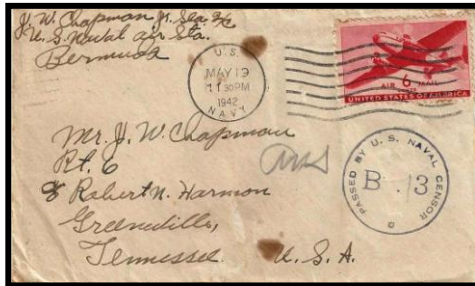 J. W. Chapman Jr. Sea 2/c
U. S. Naval Air Sta.
Bermuda
U. S.
MAY 19
11 30PM
1942
NAVY
AIR 6 MAIL
CENTS
UNITED STATES OF AMERICA
Mr. J. W. Chapman
Rt. 6
% Robert N. Harmon
Greeneville,
Tennessee
U. S. A.
PASSED BY U. S. NAVAL CENSOR
B. 13